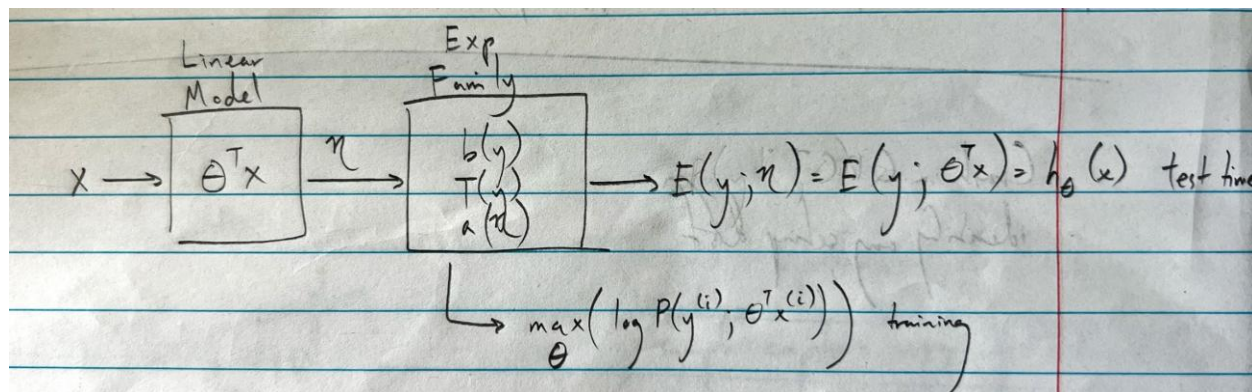 Linear
Model
Exp
Family
x → θᵀx
η →
b(y)
T(y)
a(η)
→ E(y;η) = E(y; θᵀx) = h_θ(x) test time
→ max_θ (log P(y⁽ⁱ⁾; θᵀx⁽ⁱ⁾)) training